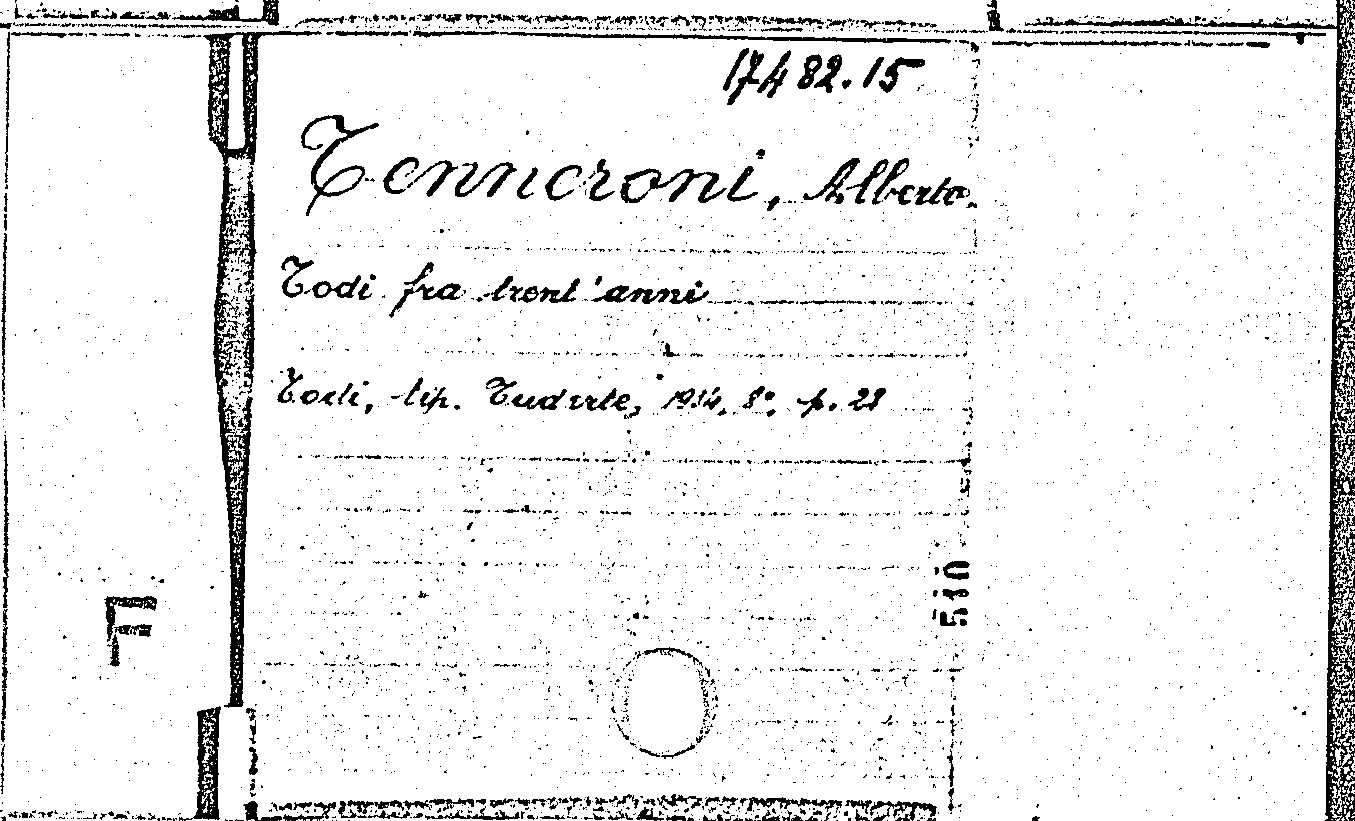 17482.15
Tenneroni, Alberto.
Todi fra trent'anni
Todi, tip. Tuderte, 1914, 8°, p. 28
510
F